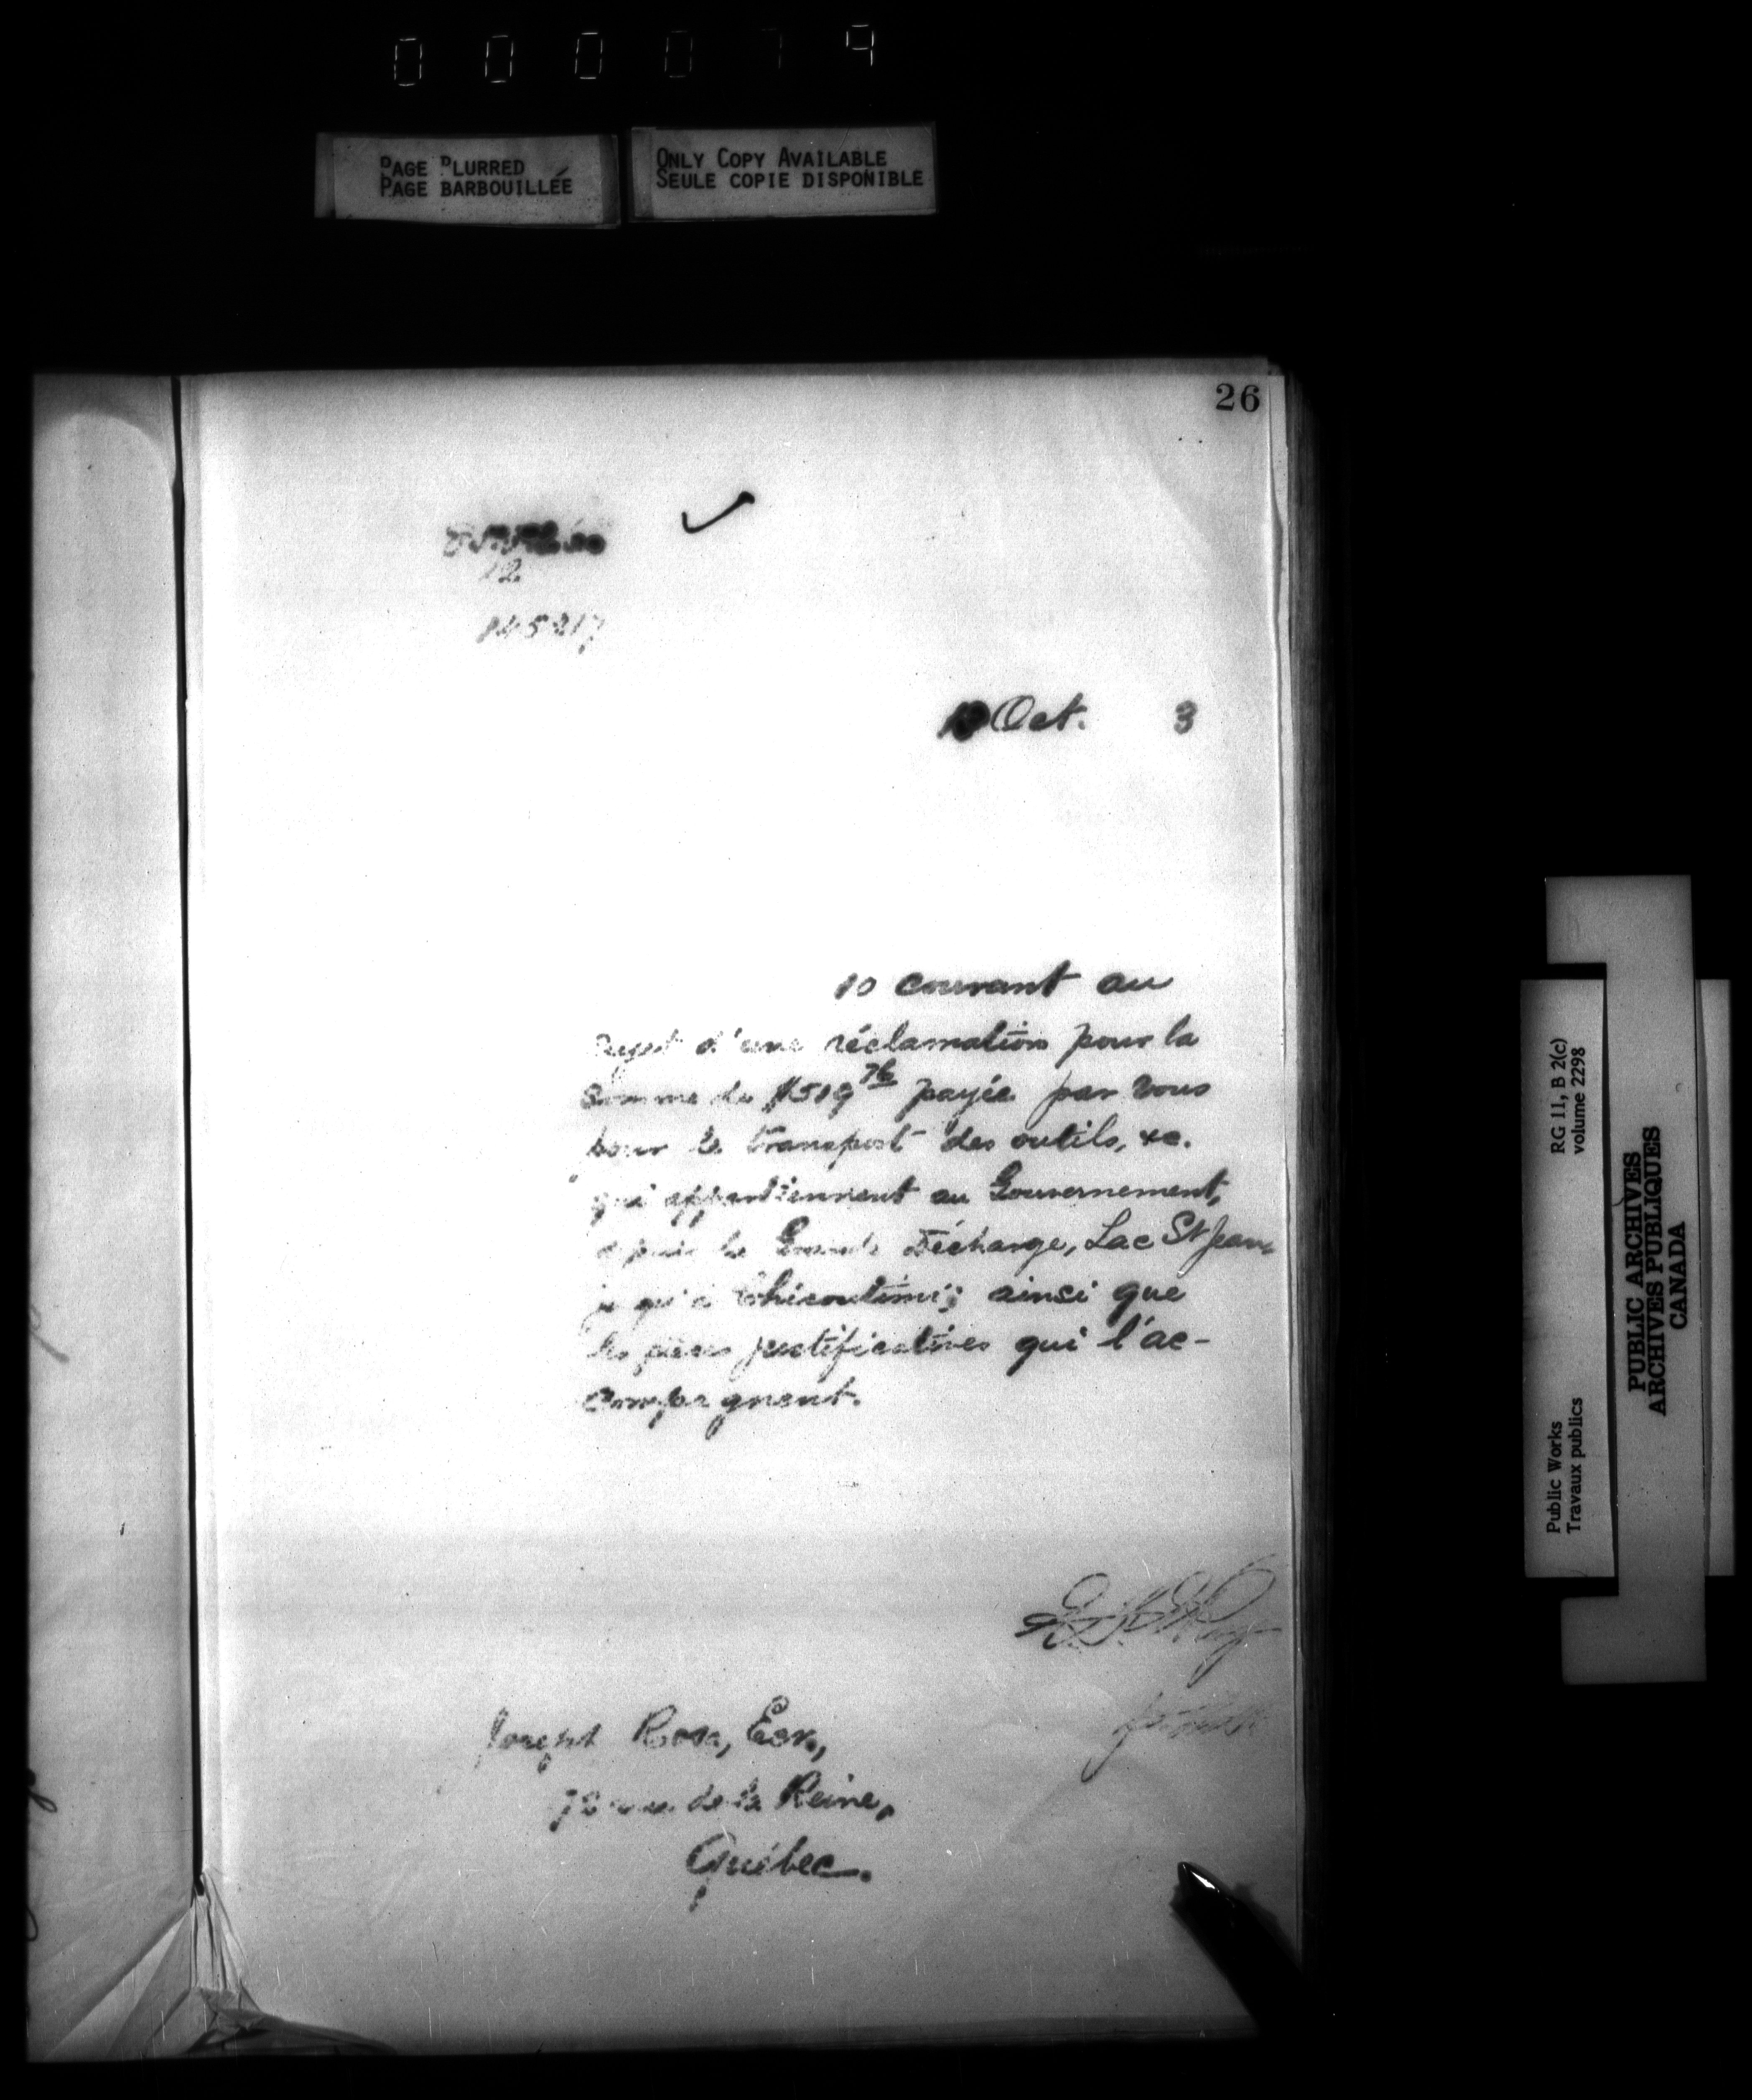 000079
PAGE BLURRED
PAGE BARBOUILLÉE
ONLY COPY AVAILABLE
SEULE COPIE DISPONIBLE
26
12
Oct. 3
10 courant au
sujet d'une réclamation pour la
somme de $519 76 payée par vous
pour le transport des outils, &c.
qui appartiennent au Gouvernement,
depuis la Grande Décharge, Lac St Jean
jusqu'à Chicoutimi; ainsi que
les pièces justificatives qui l'ac-
compagnent.
Joseph Rosa, Ecr.,
rue de la Reine,
Québec.
RG 11, B 2(c)
volume 2298
Public Works
Travaux publics
PUBLIC ARCHIVES
ARCHIVES PUBLIQUES
CANADA